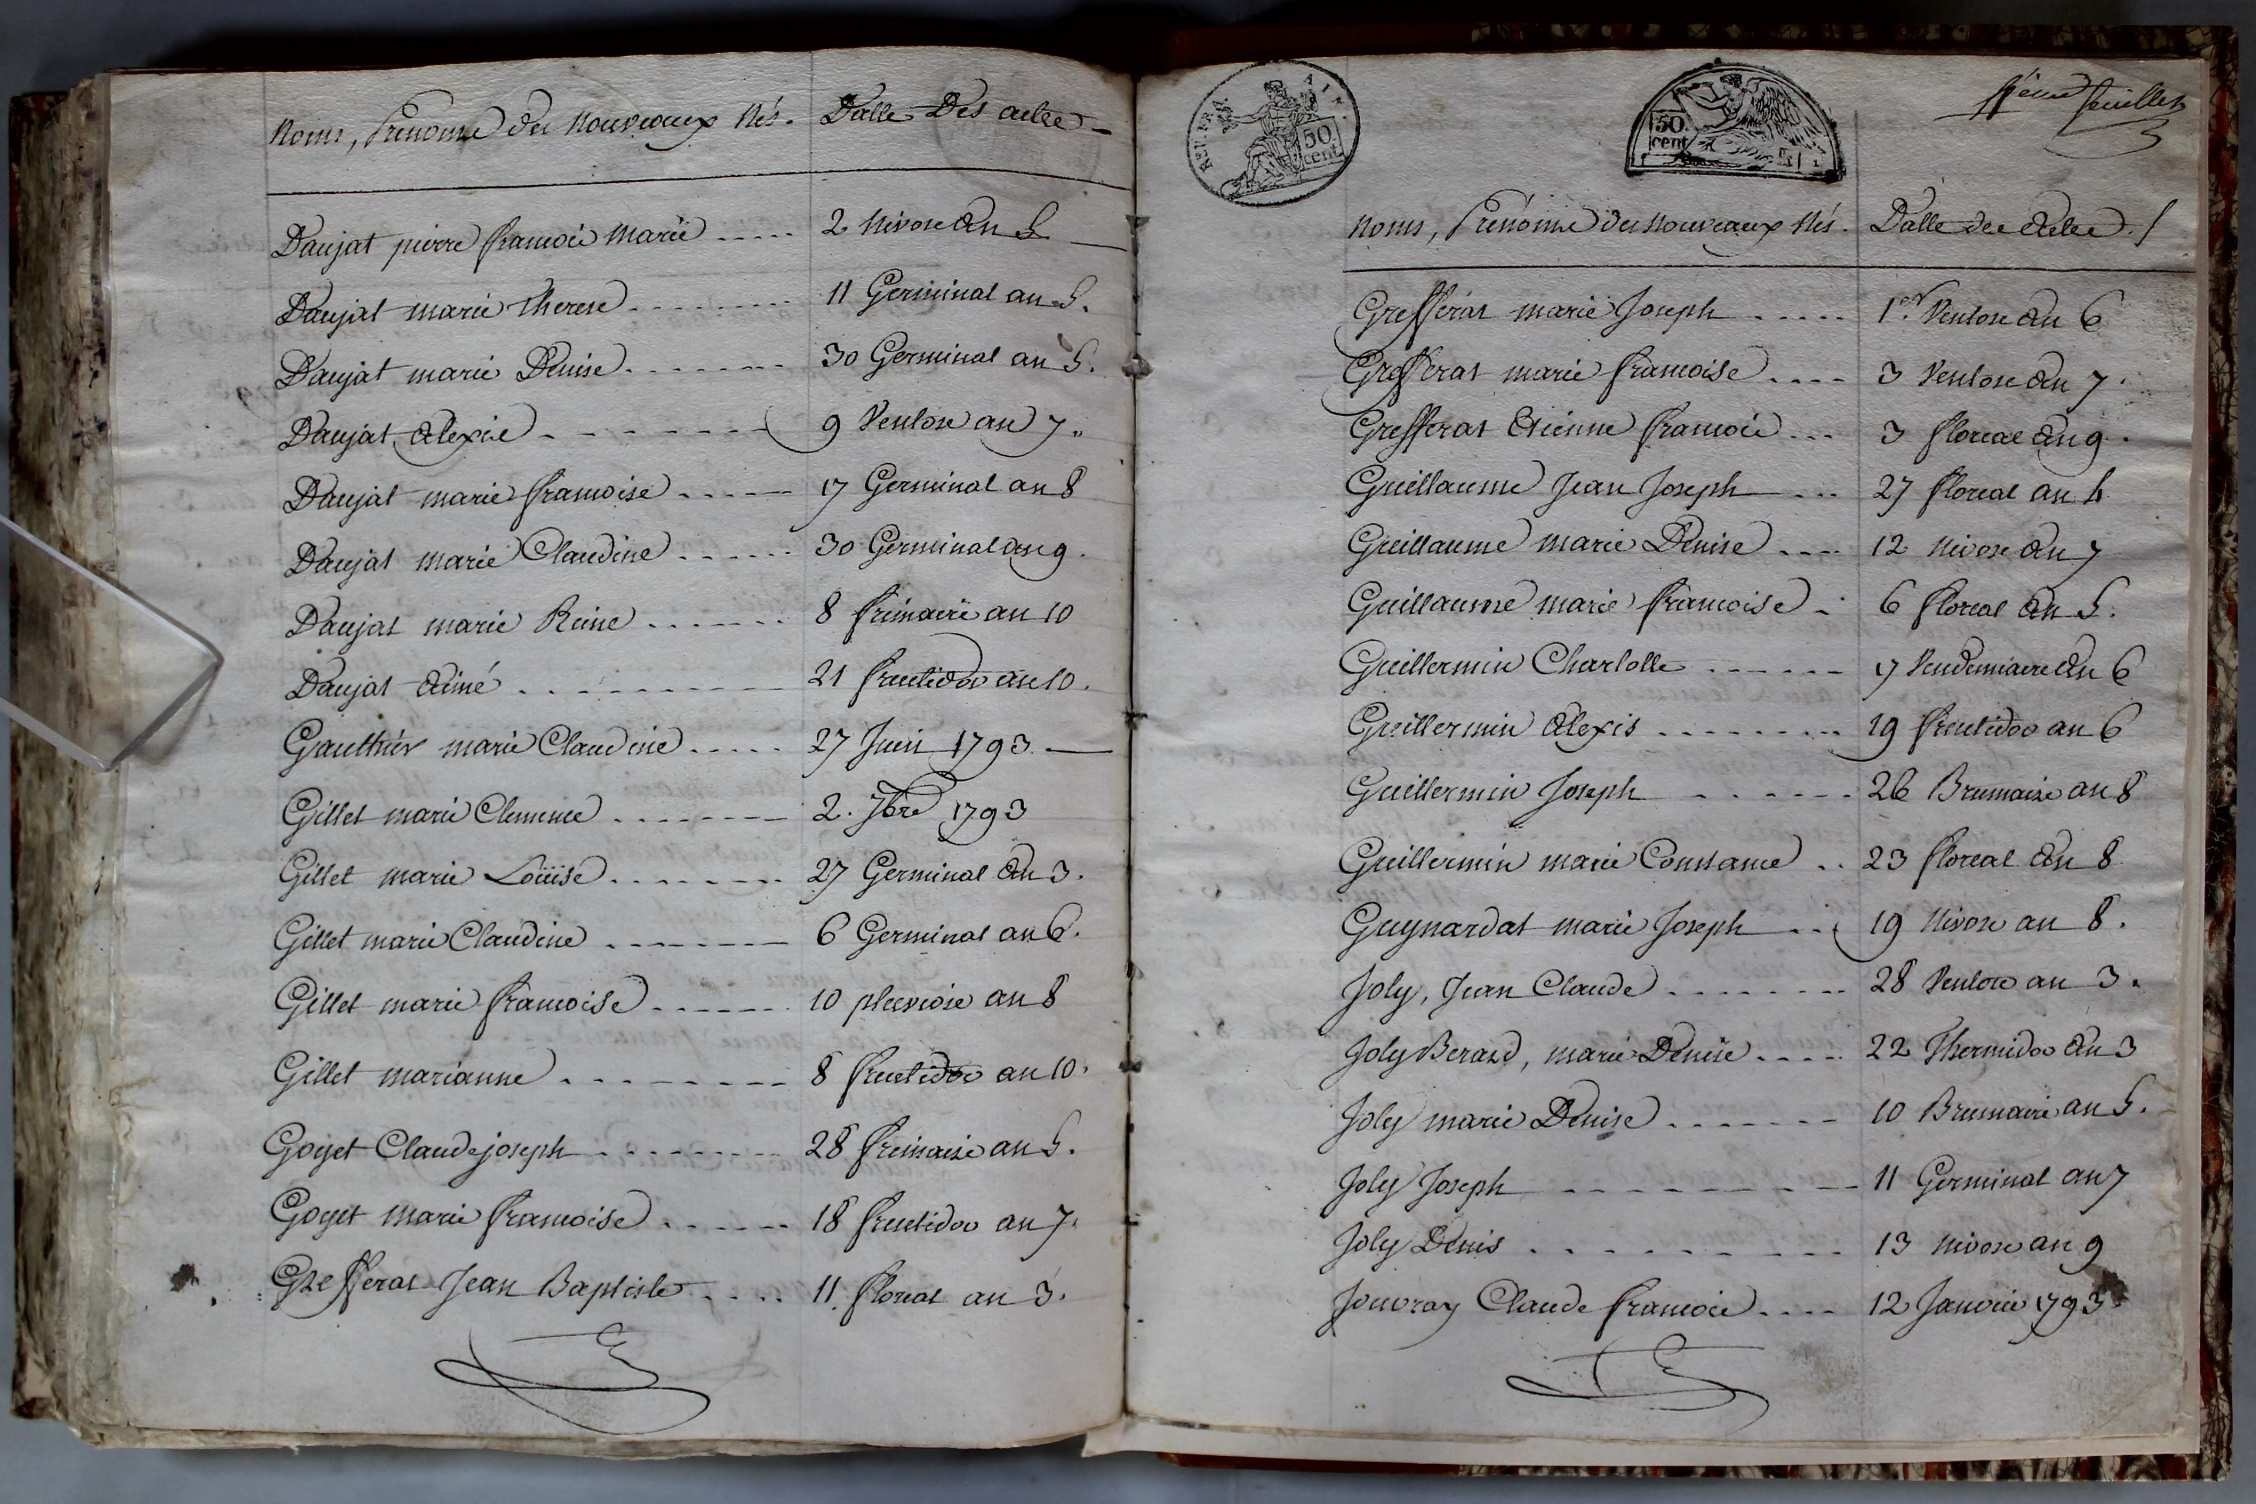 Noms, Prenoms des Nouveaux Nés. Datte Des actes
Daujat pierre francois Marie ..... 2 Nivose an 5
Daujat marie Therese ........ 11 Germinal an 5.
Daujat marie Denise ....... 30 Germinal an 5.
Daujat Alexise ....... 9 Ventose an 7.
Daujat marie francoise ..... 17 Germinal an 8
Daujat marie Claudine ...... 30 Germinal an 9.
Daujat marie Reine ....... 8 frimaire an 10
Daujat Aimé .......... 21 fructidor an 10.
Gaulthier marie Claudine ..... 27 Juin 1793.
Gillet marie Clemence ....... 2. 7bre 1793
Gillet marie Loüise ....... 27 Germinal an 3.
Gillet marie Claudine ....... 6 Germinal an 6.
Gillet marie francoise ...... 10 pluviose an 8
Gillet marianne ........ 8 fructidor an 10.
Goyet Claude joseph ........ 28 frimaire an 5.
Goyet marie francoise ...... 18 fructidor an 7.
Grefferat Jean Baptiste ..... 11 floreal an 3.
REP. FRA.
50 cent
50. cent
feuillet
Noms, Prénoms des Nouveaux Nés. Datte des Actes.
Grefferat marie Joseph ..... 1er. Ventose an 6
Grefferat marie francoise .... 3 Ventose an 7.
Grefferat Etienne francois ... 3 floreal an 9.
Guillaume Jean Joseph ... 27 floreal an 4
Guillaume marie Denise .... 12 Nivose an 7
Guillaume marie francoise . 6 floreal an 5.
Guillermin Charlotte ...... 17 Vendemiaire an 6
Guillermin Alexis ........ 19 fructidor an 6
Guillermin Joseph ...... 26 Brumaire an 8
Guillermin marie Constance .. 23 floreal an 8
Guynardat marie Joseph ... 19 Nivose an 8.
Joly, Jean Claude ....... 28 Ventose an 3.
Joly Berard, marie Denise .... 22 Thermidor an 3
Joly marie Denise ....... 10 Brumaire an 5.
Joly Joseph ......... 11 Germinal an 7
Joly Denis ......... 13 Nivose an 9
Jouvray Claude francois .... 12 Janvier 1793